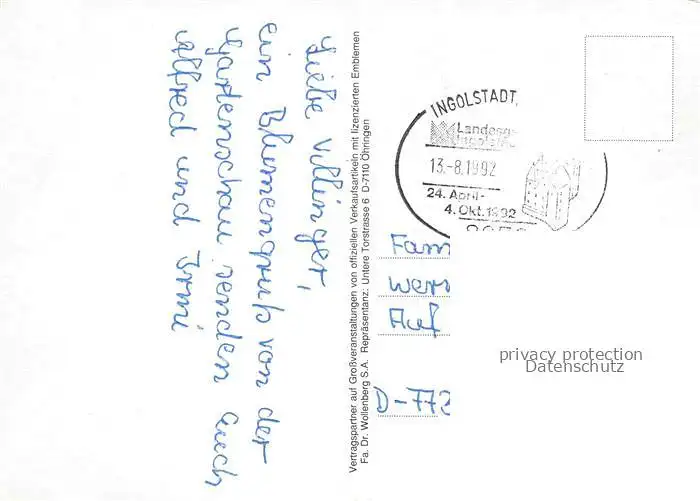 Liebe Villinger,
ein Blumengruß von der
Gartenschau senden Euch
Alfred und Irmi
Vertragspartner auf Großveranstaltungen von offiziellen Verkaufsartikeln mit lizenzierten Emblemen
Fa. Dr. Wollenberg S.A. Repräsentanz: Untere Torstrasse 6 D-7110 Öhringen
INGOLSTADT
Landesg
Ingolst
13.-8.1992
24. April-
4. Okt. 1992
Fam
Wern
Auf
D-772
privacy protection
Datenschutz